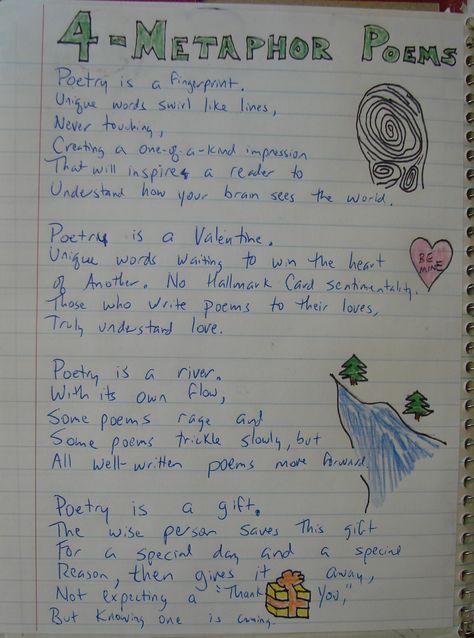 4-METAPHOR POEMS
Poetry is a fingerprint.
Unique words swirl like lines,
Never touching,
Creating a one-of-a-kind impression
That will inspire a reader to
Understand how your brain sees the world.
Poetry is a Valentine.
Unique words waiting to win the heart
of Another. No Hallmark Card sentimentality.
Those who write poems to their loves,
Truly understand love.
BE
MINE
Poetry is a river.
With its own flow,
Some poems rage and
Some poems trickle slowly, but
All well-written poems move forward.
Poetry is a gift.
The wise person saves this gift
For a special day and a special
Reason, then gives it away,
Not expecting a "Thank You,"
But knowing one is coming.